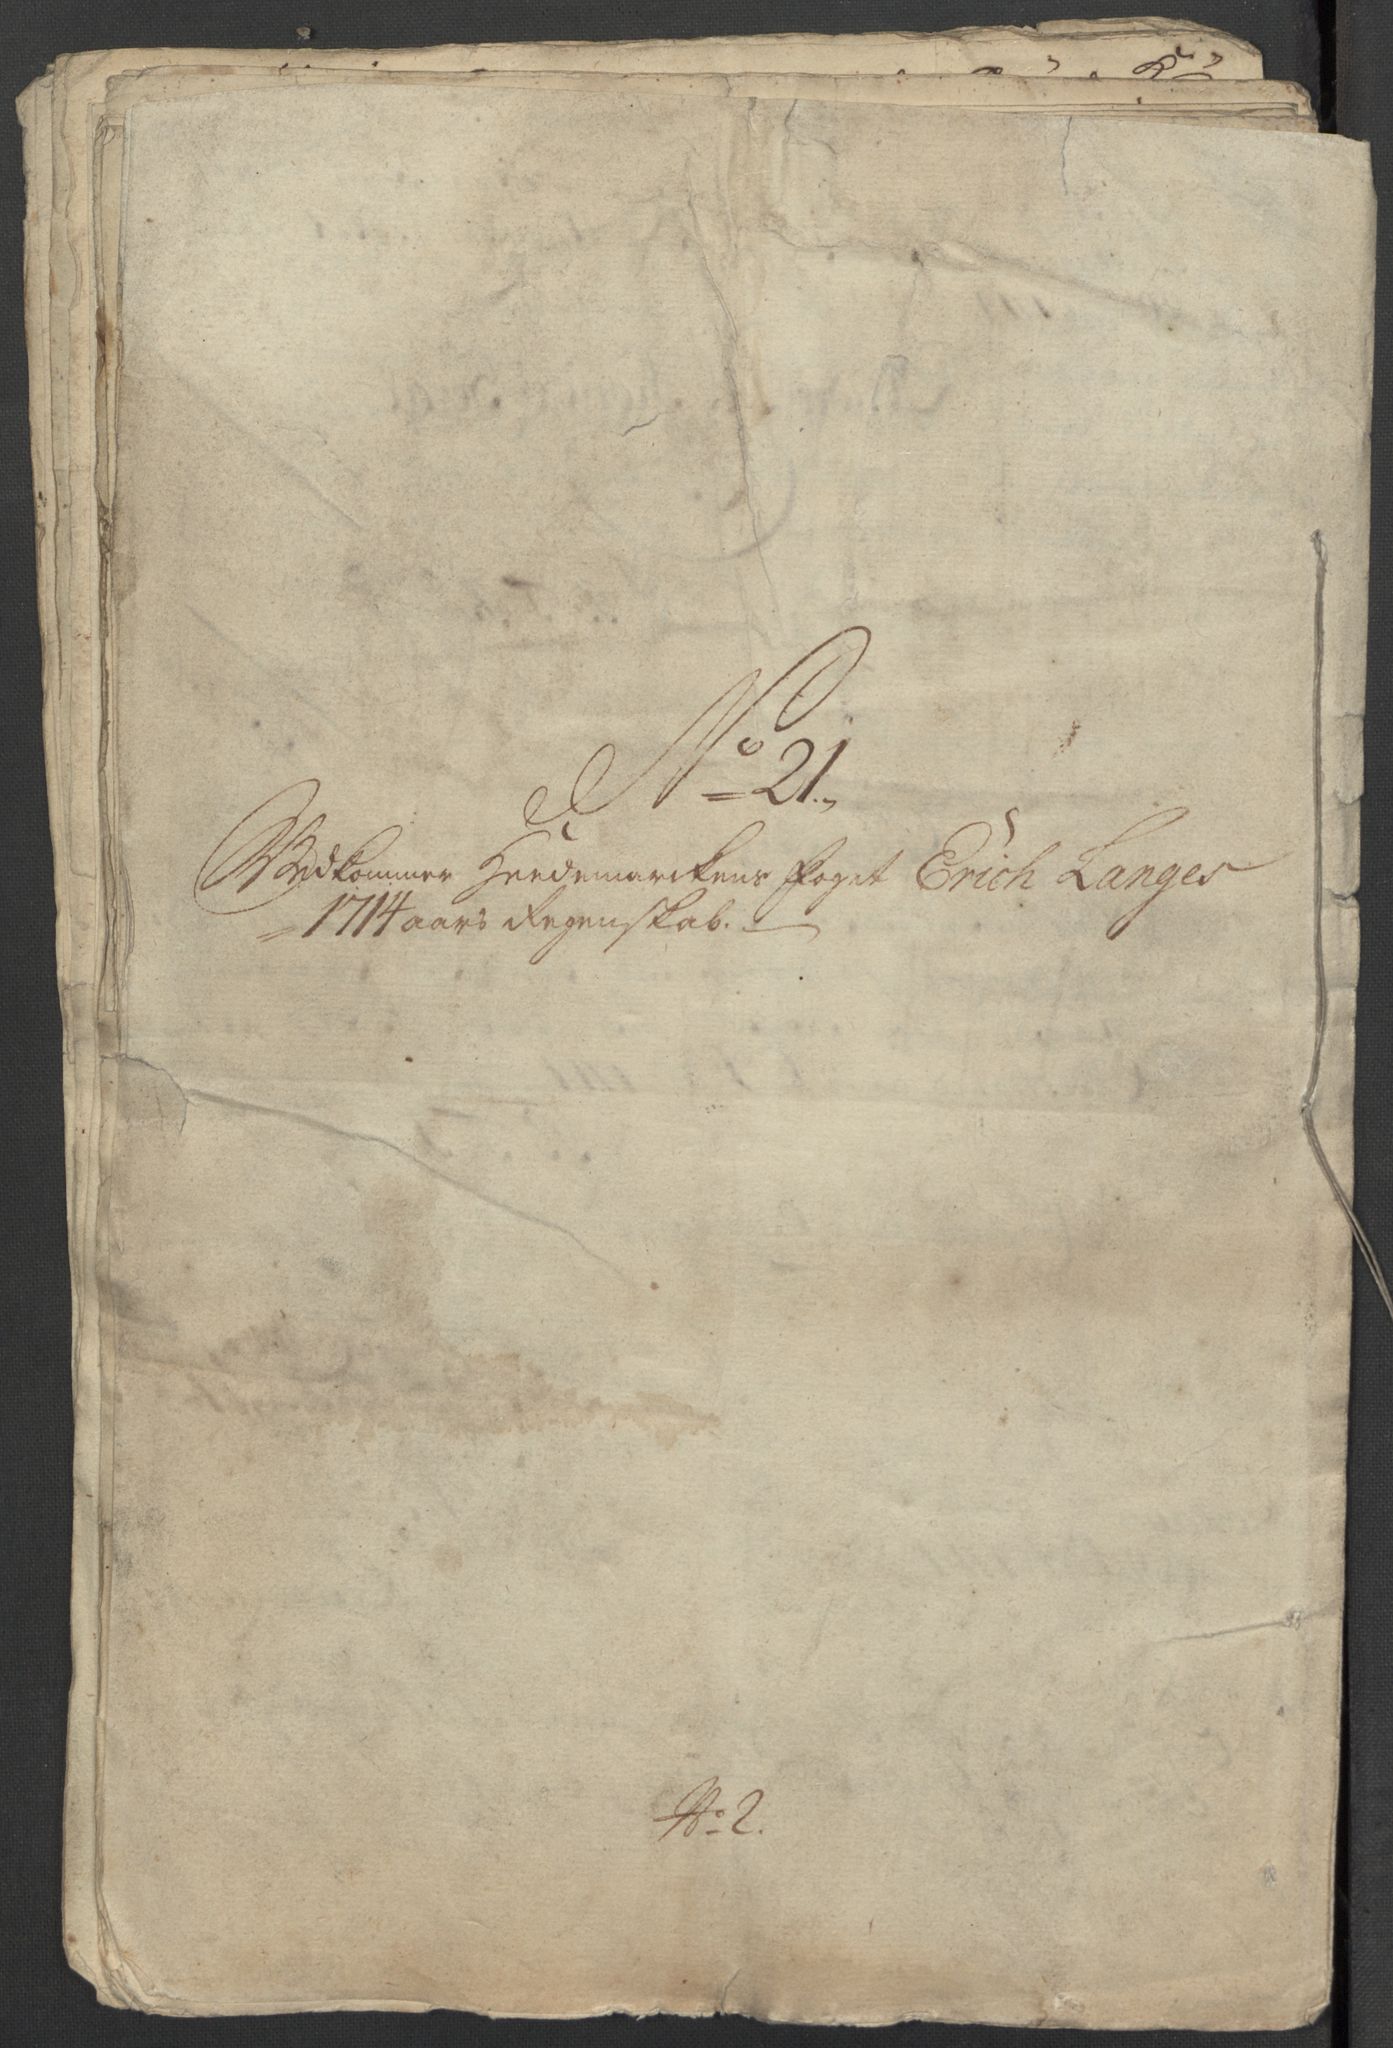 No 21.
Vedkommer Heedemarckens foget Erich Langes
1714 aars Regenskab.
No 2.